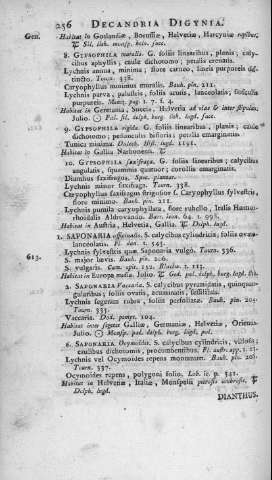 256 DECANDRIA DIGYNIA.
Gen. Habitat in Gotlandiæ, Borussiæ, Helvetiæ, Harcyniæ rupibus;
8. GYPSOPHILA muralis. G. foliis linearibus, planis; caly-
cibus aphyllis; caule dichotomo; petalis crenatis.
Lychnis annua, minima; flore carneo, lineis purpureis di-
stincto. Tourn. 338.
Caryophyllus minimus muralis. Bauh. pin. 211.
Lychnis parva, palustris, foliis acutis, lanceolatis, flosculis
purpureis. Mentz. pug. t. 7. f. 4.
Habitat in Germania, Suecia, Helvetia ad vias & inter segetes.
Julio.
9. GYPSOPHILA rigida. G. foliis linearibus, planis; caule
dichotomo; pedunculis bifloris; petalis emarginatis.
Tunica minima. Dalech. Hist. lugd. 1191.
Habitat in Gallia Narbonensi.
10. GYPSOPHILA saxifraga. G. foliis linearibus; calycibus
angulatis, squammis quatuor; corollis emarginatis.
Dianthus saxifragus. Spec. plantar.
Lychnis minor saxifraga. Tourn. 338.
Caryophyllus saxifragus strigosior f. Caryophyllus sylvestris,
flore minimo. Bauh. pin. 211.
Lychnis pumila caryophyllata, flore rubello, Italis Hamor-
rhoidalis Aldrovandi. Barr. icon. 64. t. 998.
Habitat in Austria, Helvetia, Gallia.
1. SAPONARIA officinalis. S. calycibus cylindricis, foliis ovato-
lanceolatis. Fl. dan. t. 543.
Lychnis sylvestris quæ Saponaria vulgo. Tourn. 336.
S. major lævis. Bauh. pin. 206.
613. S. vulgaris. Cam. epit. 131. Blackw. t. 113.
Habitat in Europa media. Julio
2. SAPONARIA Vaccaria. S. calycibus pyramidatis, quinquan-
gularibus; foliis ovatis, acuminatis, sessilibus.
Lychnis segetum rubra, foliis perfoliatæ. Bauh. pin. 205.
Tourn. 335.
Vaccaria. Dod. pempt. 104.
Habitat inter segetes Galliæ, Germaniæ, Helvetiæ, Orientis.
Julio.
6. SAPONARIA Ocymoides. S. calycibus cylindricis, villosis;
caulibus dichotomis, procumbentibus.
Lychnis vel Ocymoides repens montanum. Bauh. pin. 206.
Tourn. 337.
Ocymoides repens, polygoni folio. Lob. ic. p. 341.
Habitat in Helvetiæ, Italiæ, Monspelii
Delph. legd.
DIANTHUS.